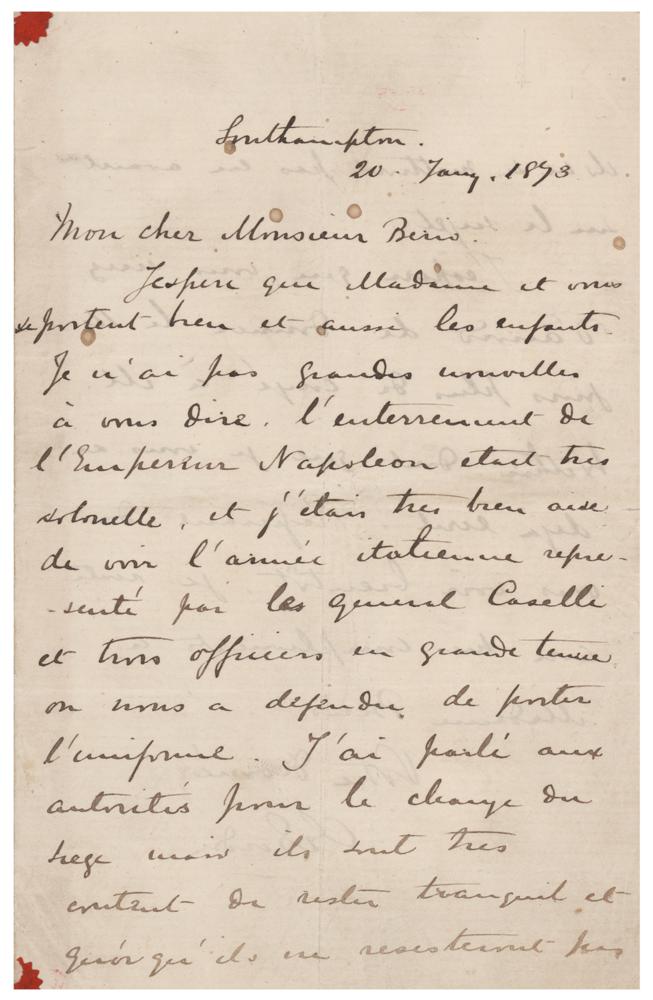 Southampton.
20. Jany. 1873
Mon cher Monsieur Berio.
J'espere que Madame et vous
se portent bien et aussi les enfants.
Je n'ai pas grandes nouvelles
à vous dire. l'enterrement de
l'Empereur Napoleon etait tres
solonelle, et j'étais tres bien aise
de voir l'armée italienne repre-
-senté par les general Caselli
et trois officiers en grande tenue
on nous a défendu de porter
l'uniforme. J'ai parlé aux
autorités pour le change du
siege mais ils sont tres
content de rester tranquil et
quoiqu'ils ne resisteront pas